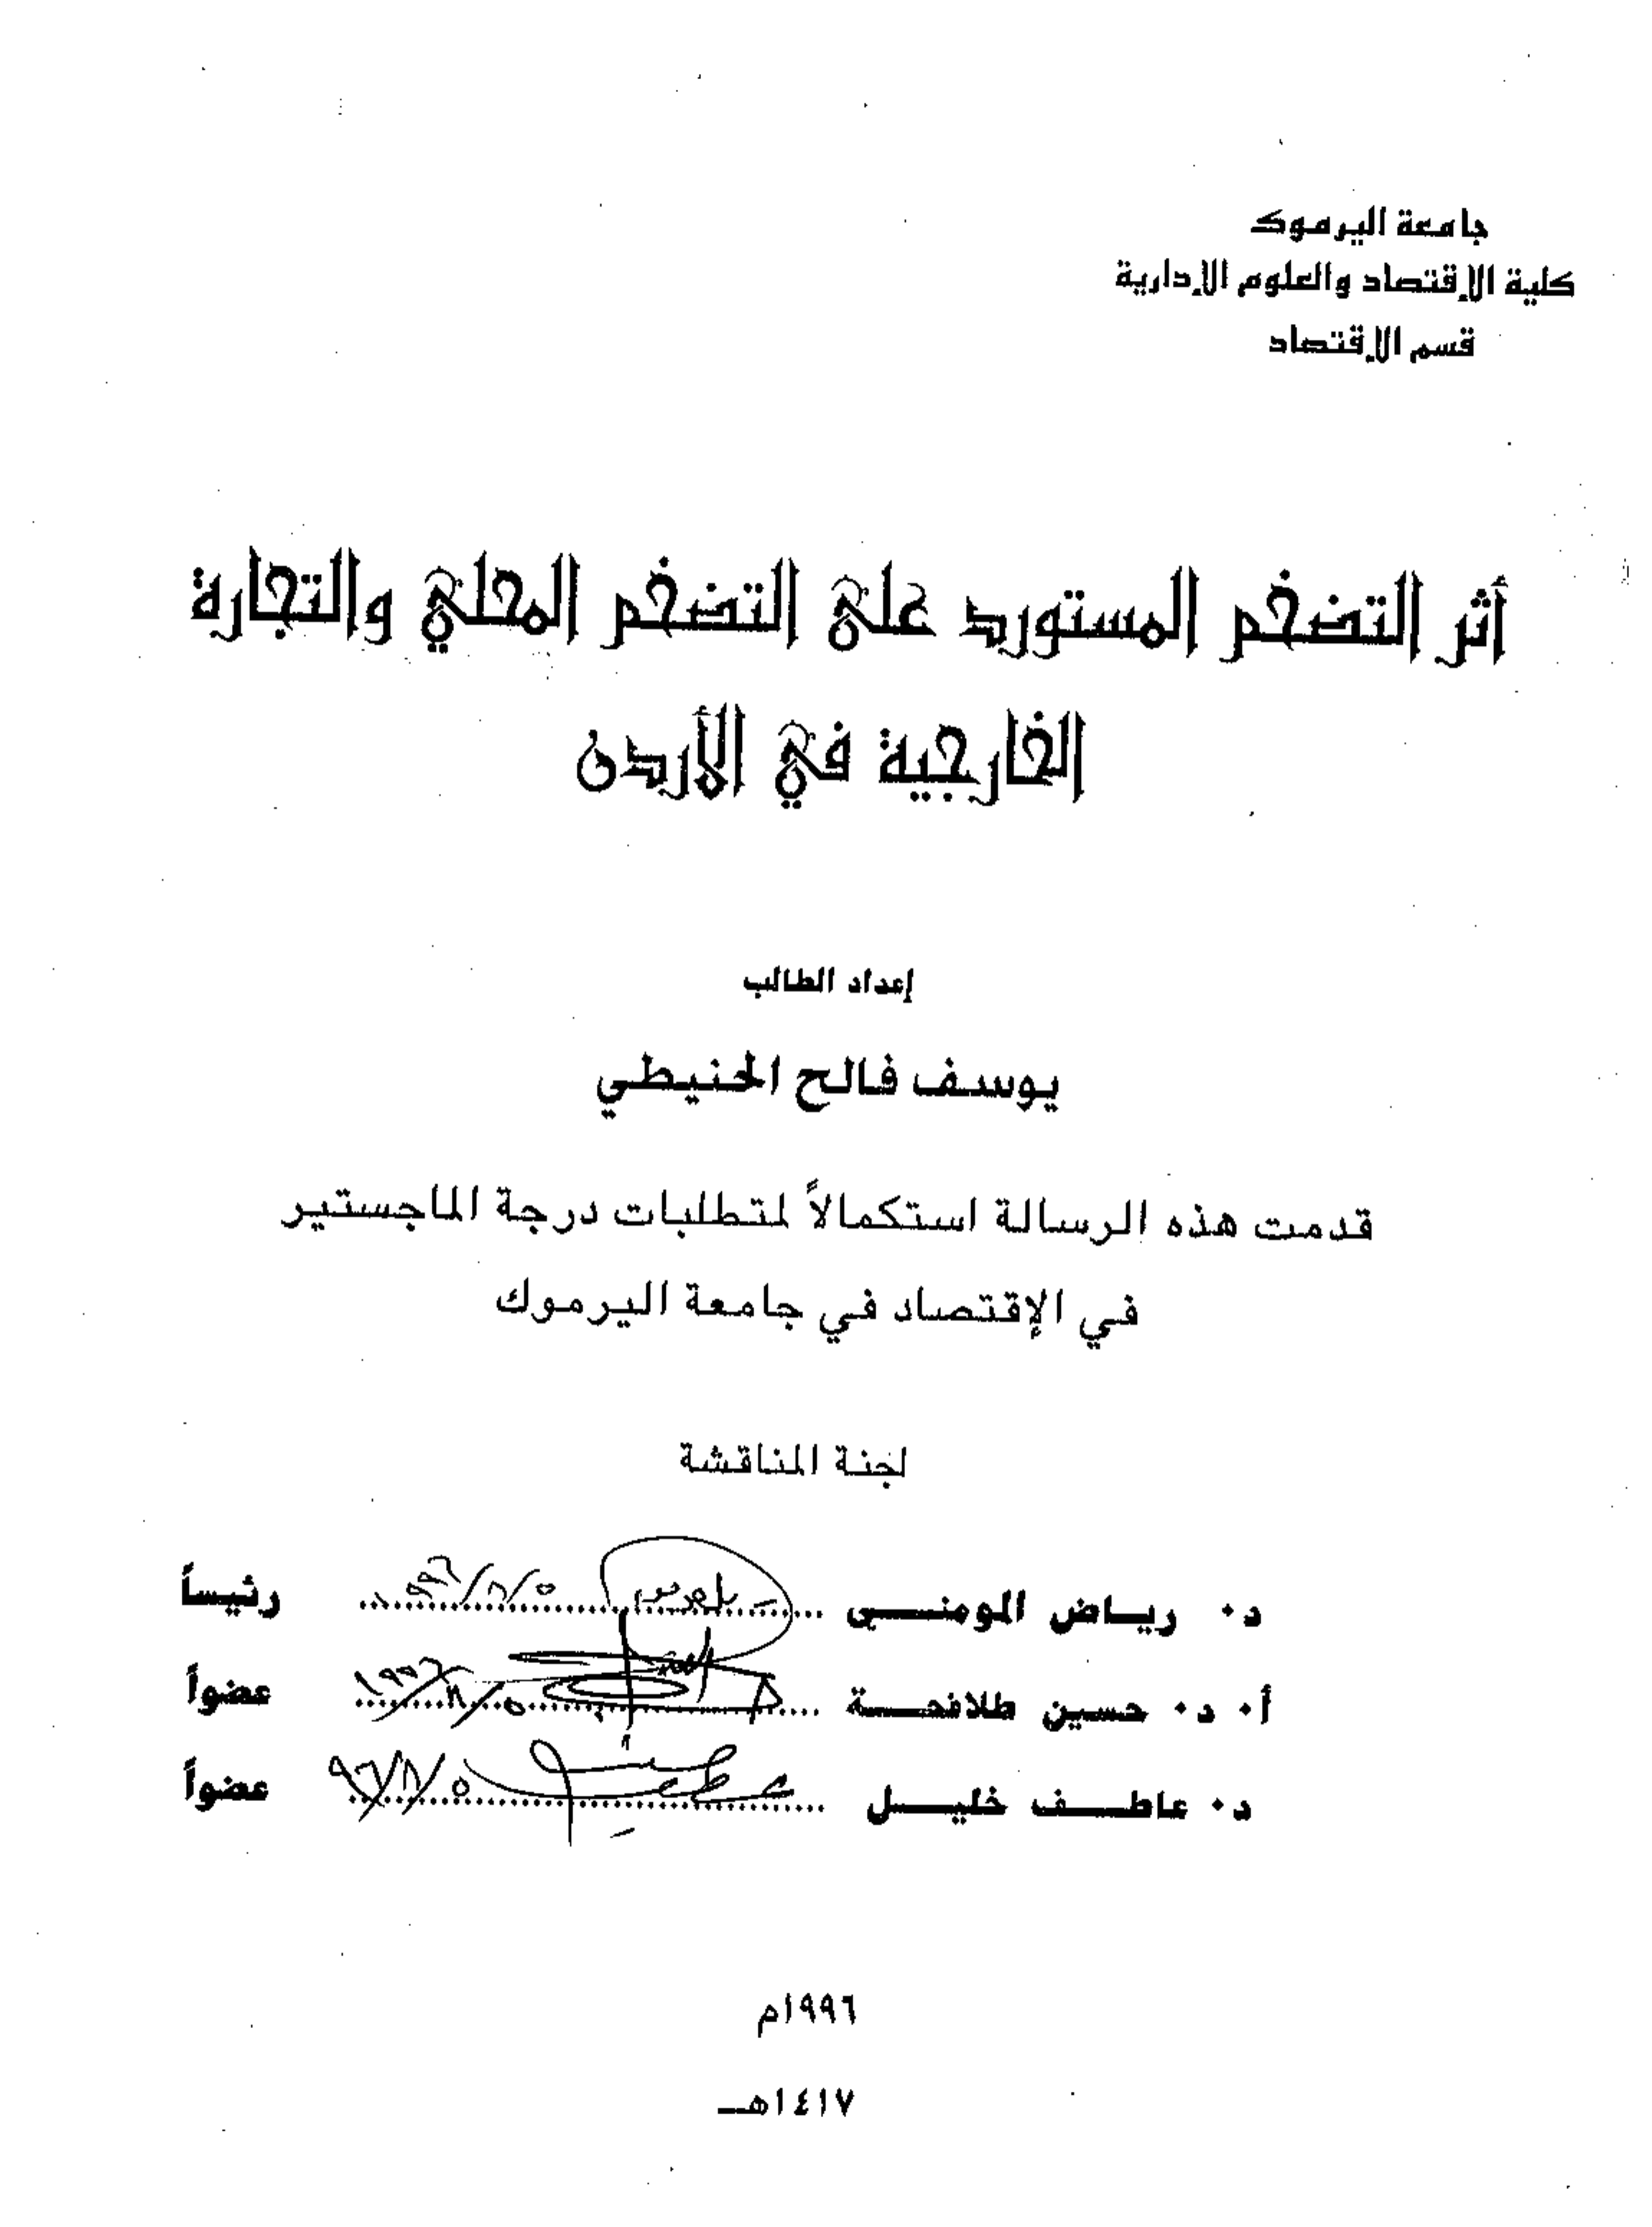 جامعة اليرموك
كلية الإقتصاد والعلوم الإدارية
قسم الإقتصاد
أثر التضخم المستورد على التضخم المحلي والتجارة
الخارجية في الأردن
إعداد الطالب
يوسف فالح الحنيطي
قدمت هذه الرسالة استكمالاً لمتطلبات درجة الماجستير
في الإقتصاد في جامعة اليرموك
لجنة المناقشة
د. رياض المومني ١٩٩٦/٨/٥ رئيساً
أ. د. حسين طلافحة ١٩٩٦/٨/٥ عضواً
د. عاطف خليل ٩٦/٨/٥ عضواً
١٩٩٦م
١٤١٧هـ